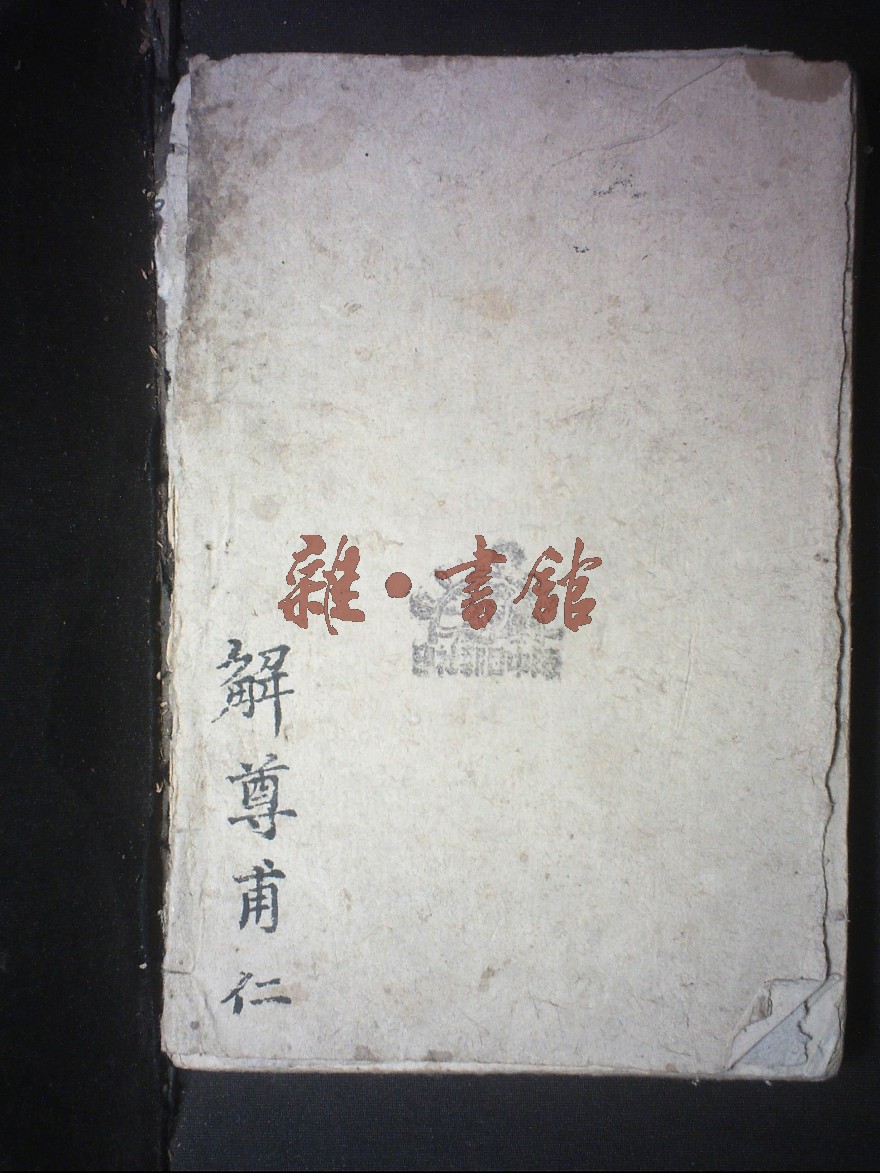 雜·書館
解尊甫仁